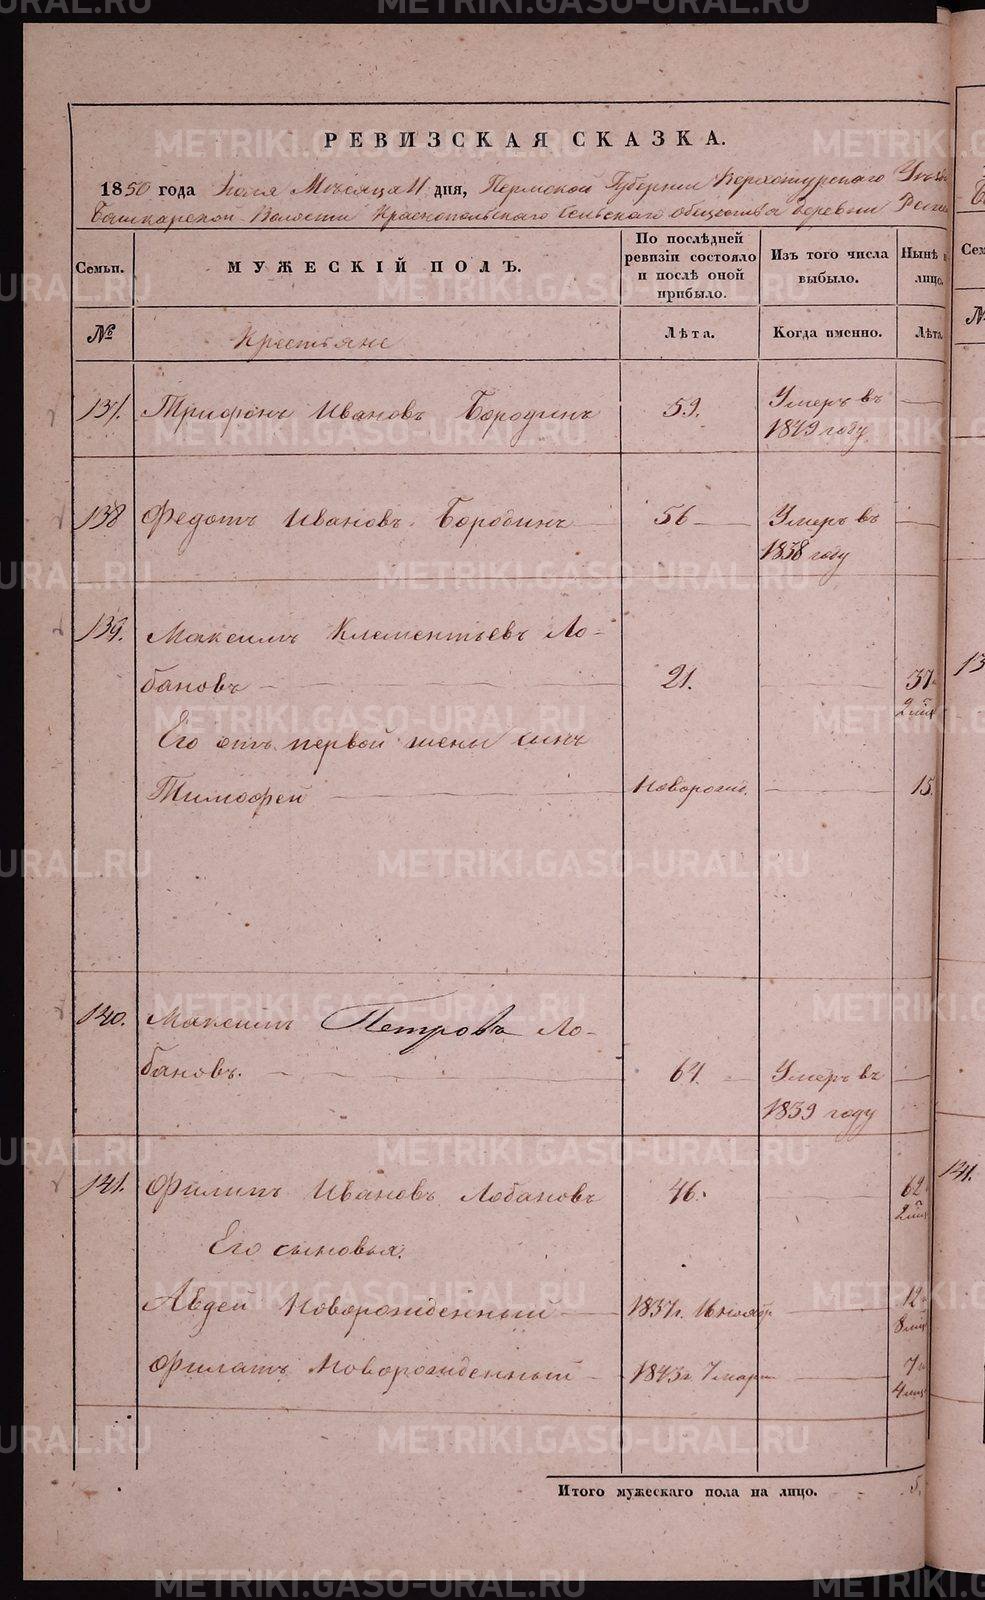 РЕВИЗСКАЯ СКАЗКА.
1850 года Іюля Мѣсяца 11 дня, Пермской Губерніи Верхотурскаго Уѣзда
Башкарской Волости Краснопольскаго Сельскаго общества деревни
Семьи.
МУЖЕСКІЙ ПОЛЪ.
По послѣдней ревизіи состояло и послѣ оной прибыло.
Изъ того числа выбыло.
Нынѣ
лицо.
№
Крестьяне
Лѣта.
Когда именно.
Лѣта.
137. Трифонъ Ивановъ Бородинъ 59. Умеръ въ
1849 году
138 Федотъ Ивановъ Бородинъ 56 Умеръ въ
1838 году
139. Максимъ Клементьевъ Ло-
бановъ 21. 37
Его отъ первой жены сынъ
Тимофей новорожд. 15.
140. Максимъ Петровъ Ло-
бановъ. 64. Умеръ въ
1839 году
141. Филипъ Ивановъ Лобановъ 46. 62
Его сыновья.
Авдей Новорожденный 1837г. 12
8 мѣс
Филатъ Новорожденный 1843г 7 март 7
4 мѣс
Итого мужескаго пола на лицо. 5.
13
141.
METRIKI.GASO-URAL.RU